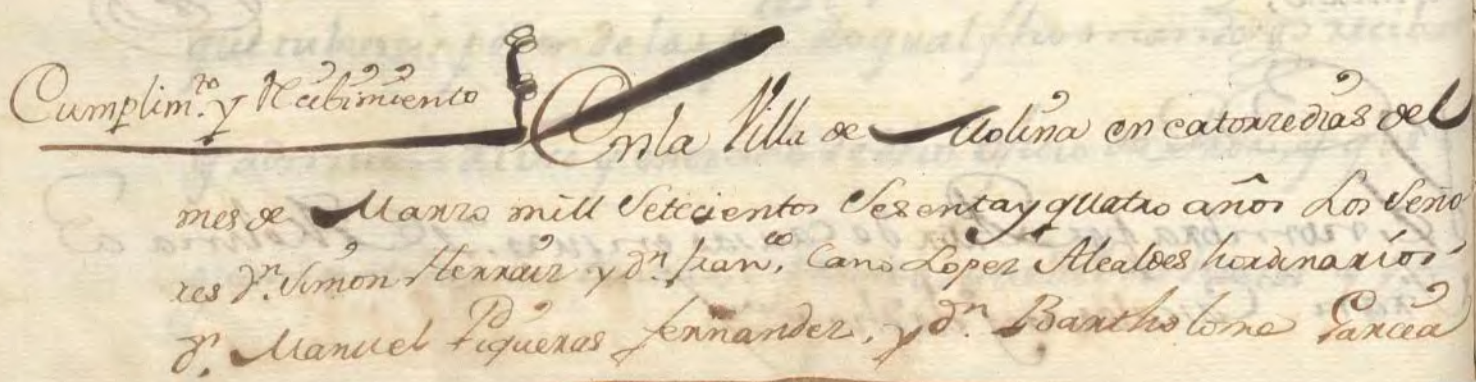 Cumplim.to y Recibimiento
En la Villa de Molina en catorze dias del
mes de Marzo mill Setecientos Sesenta y quatro años Los Seño
res Dn. Simon Herraiz y dn. Fran.co Cano Lopez Alcaldes hordinarios
Dn. Manuel Piqueras fernandez, y dn. Bartholome Garcia